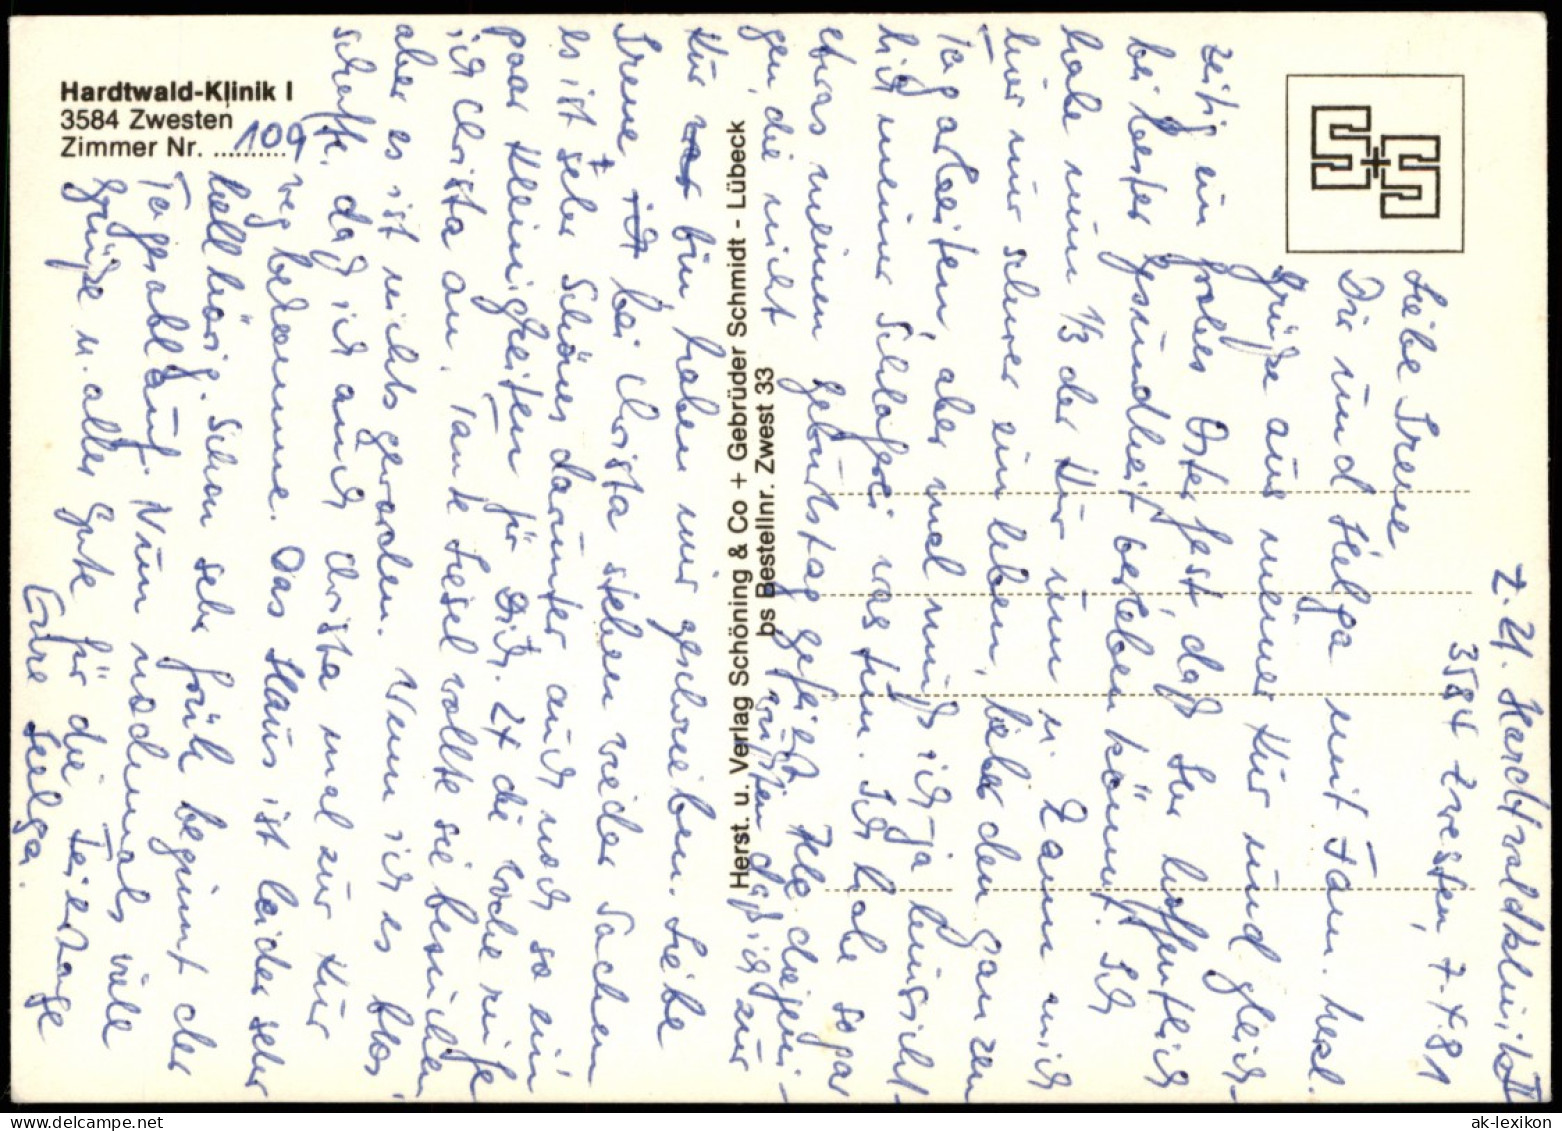 Hardtwald-Klinik I
3584 Zwesten
Zimmer Nr. .......... 109
S+S
Herst. u. Verlag Schöning & Co + Gebrüder Schmidt - Lübeck
bs Bestellnr. Zwest 33
z. Zt. Hardtwaldklinik II
3584 Zwesten, 7.4.81
Liebe Irene
Dir und Helga mit Fam. herzl.
Grüße aus meiner Kur und gleich-
zeitig ein frohes Osterfest daß Ihr hoffentlich
bei bester Gesundheit verleben könnt. Ich
habe nun 1/3 der Kur um u. kann mich
hier nur schwer einleben, lieber den ganzen
Tag arbeiten, aber mal muß ich ja hinsicht-
lich meiner Schlaferei was tun. Ich habe sogar
etwas meinen Geburtstag gefeiert. Alle diejeni-
gen, die nicht wußten daß ich zur
Kur bin, haben mir geschrieben. Liebe
Irene, bei Christa stehen wieder Sachen
es ist sehr Schönes darunter auch noch so ein
paar Kleinigkeiten für Dich. 2x die Woche rufe
ich Christa an. Tante Liesel wollte sie besuchen
aber es ist nichts geworden. Wenn ich es blos
schaffte, daß ich auch Christa mal zur Kur
weg bekomme. Das Haus ist leider sehr
hellhörig. Schon sehr früh beginnt der
Tagesablauf. Nun nochmals viele
Grüße u. alles Gute für die Feiertage
Eure Helga.
ak-lexikon